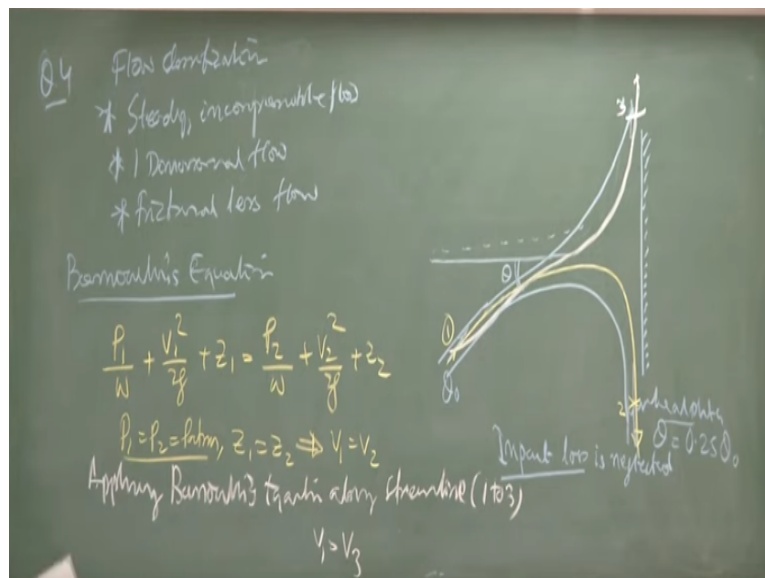 Q4 Flow classification
* Steady, incompressible flow
* 1 Dimensional flow
* frictional less flow
Bernoulli's Equation
P₁/w + V₁²/2g + Z₁ = P₂/w + V₂²/2g + Z₂
P₁ = P₂ = Patm, Z₁ = Z₂ ⇒ V₁ = V₂
Applying Bernoulli's Equation along streamline (1 to 3)
V₁ = V₃
3
θ
1
Q₀
2
Q = 0.25 Q₀
Impact loss is neglected